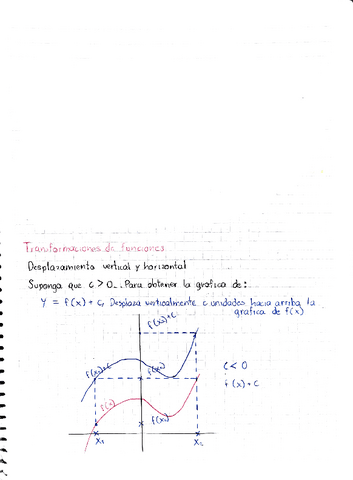 Transformaciones de funciones.
Desplazamiento vertical y horizontal
Suponga que c > 0. Para obtener la grafica de:
y = f(x) + c, Desplaza verticalmente c unidades hacia arriba la
grafica de f(x)
f(x)+c
f(x)+c
f(x)
c < 0
f(x) + c
f(x)
f(x)
x₁
x₂